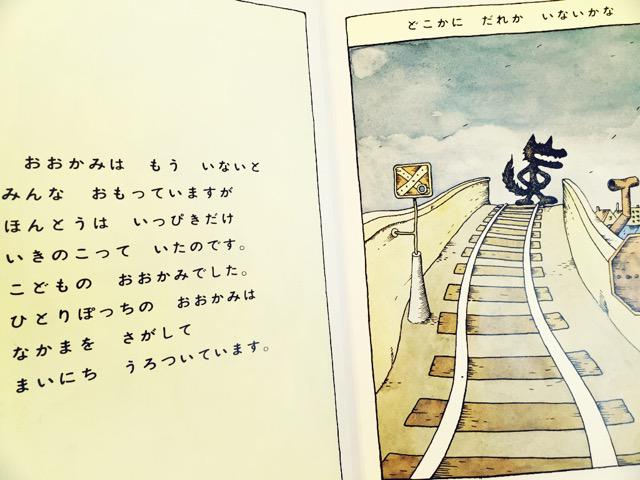 おおかみは もう いないと
みんな おもっていますが
ほんとうは いっぴきだけ
いきのこって いたのです。
こどもの おおかみでした。
ひとりぼっちの おおかみは
なかまを さがして
まいにち うろついています。
どこかに だれか いないかな